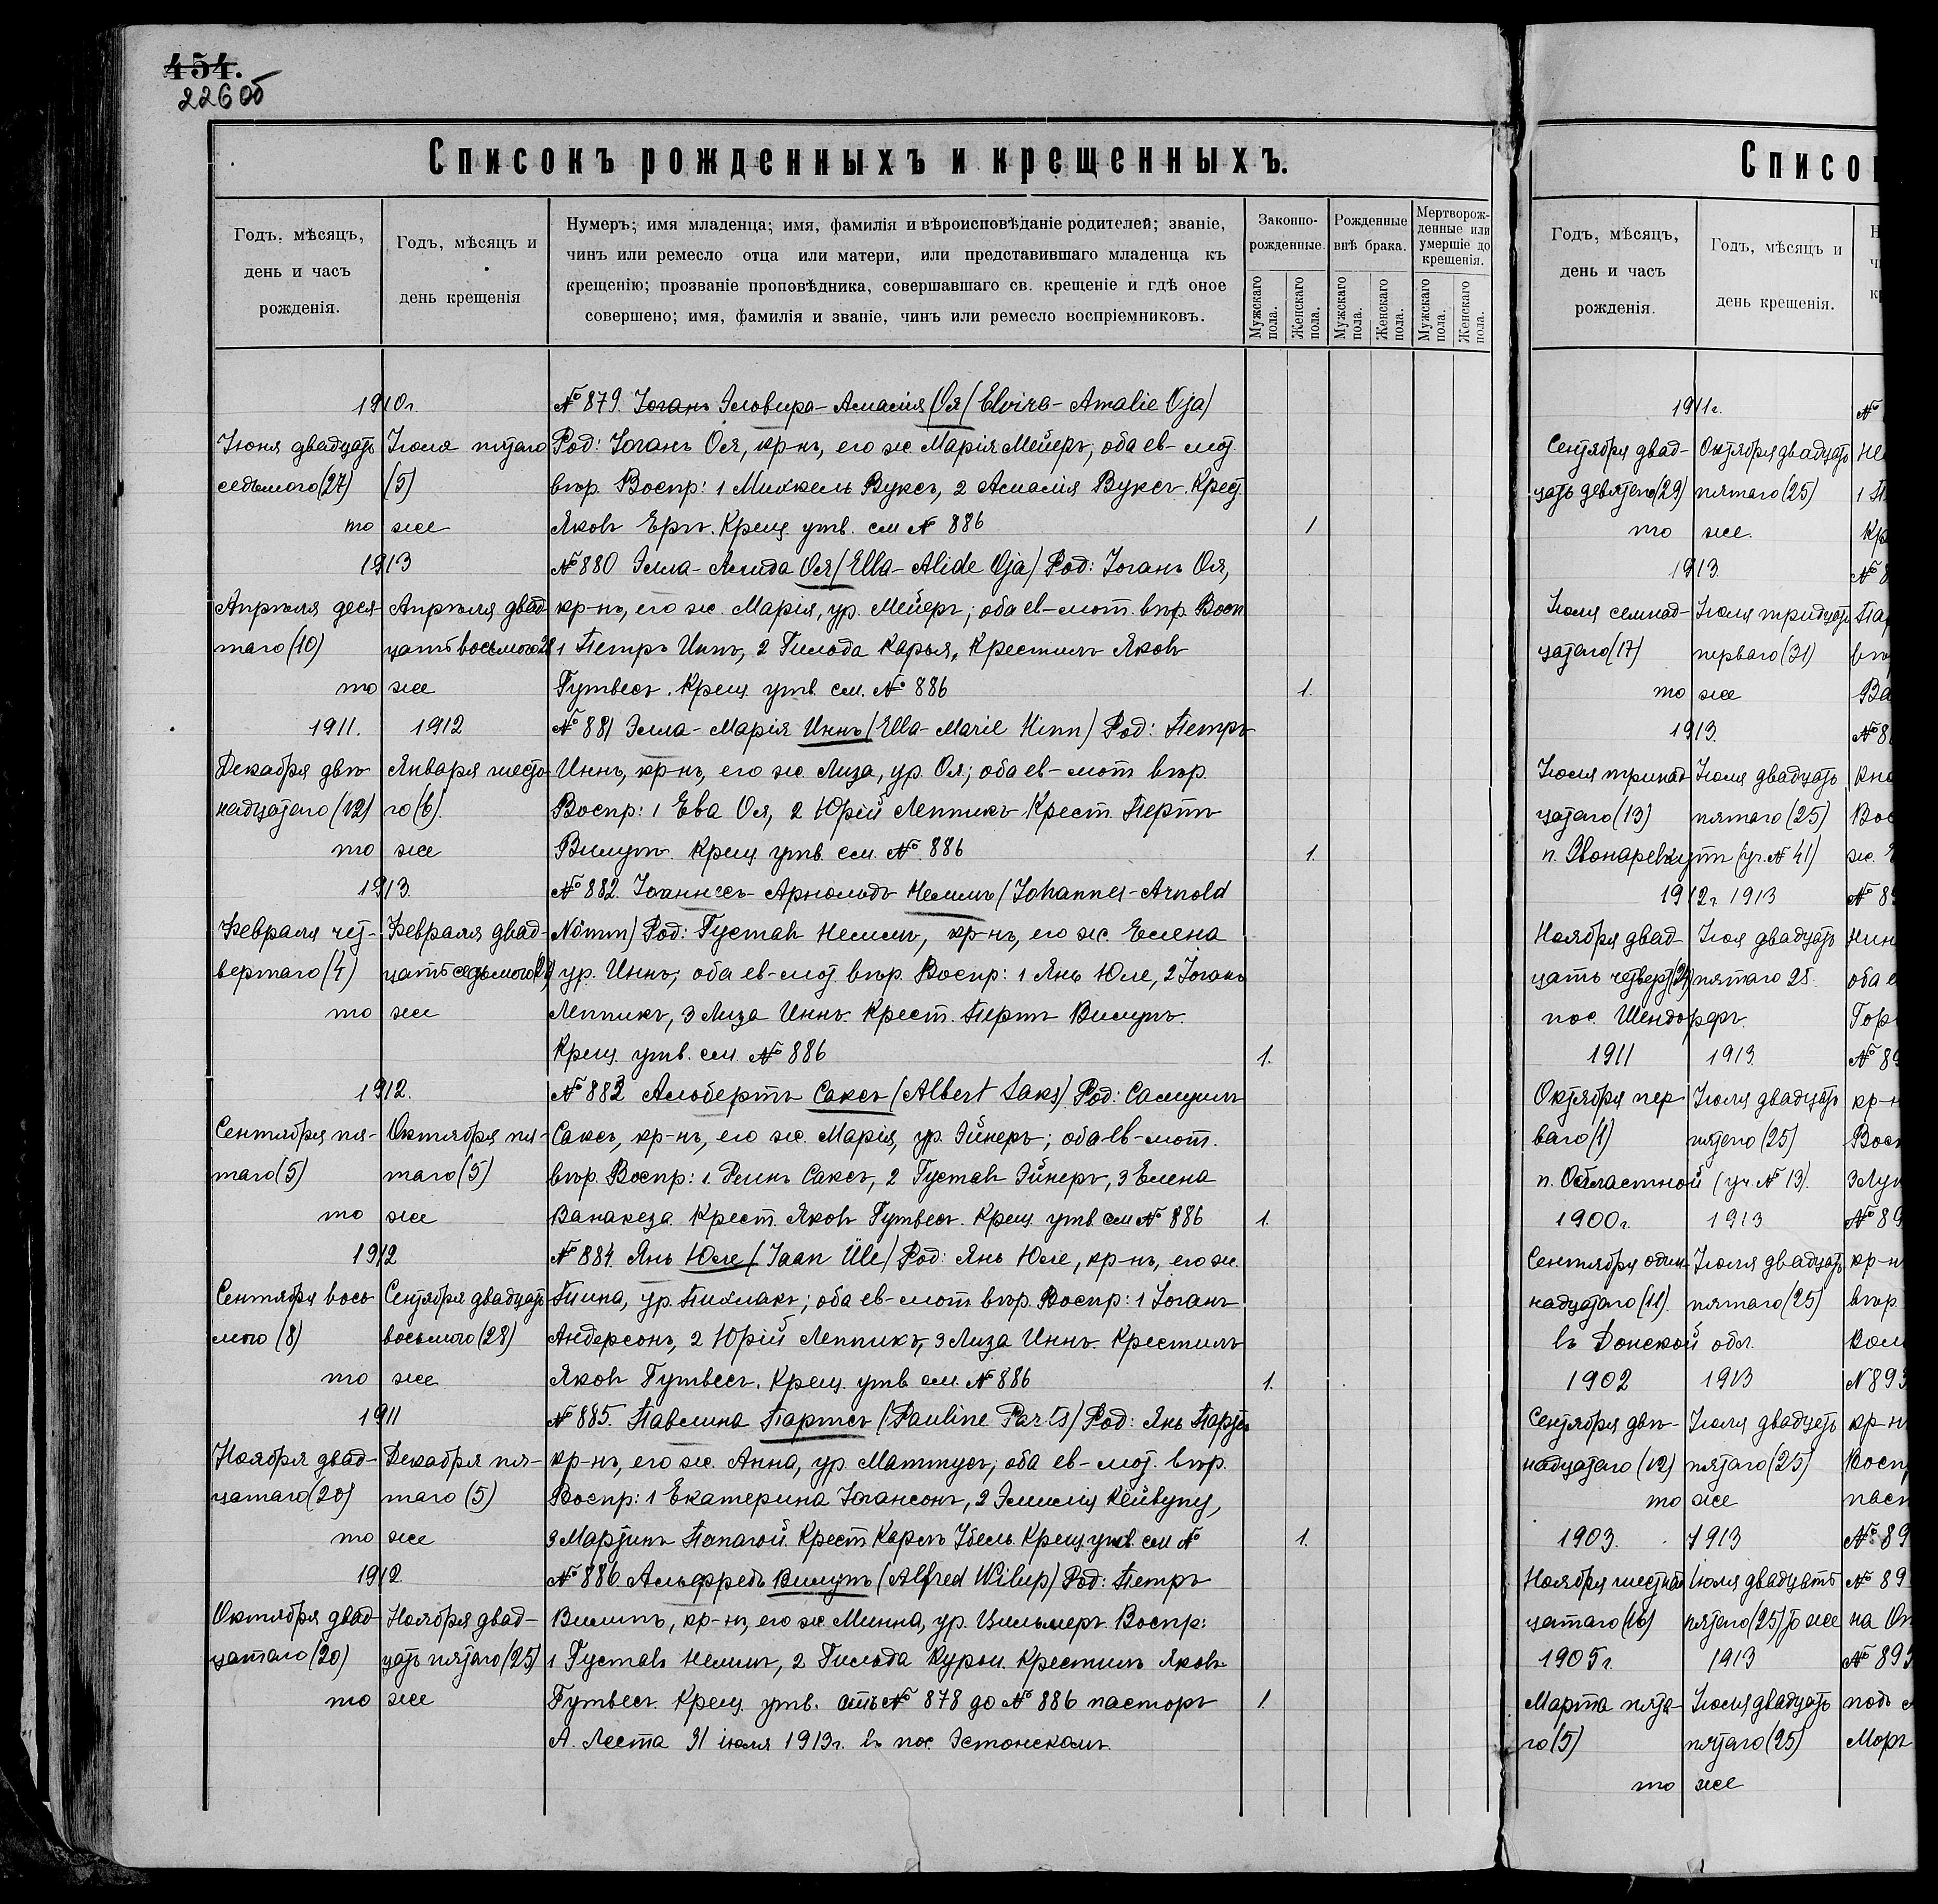 454.
226 об
Списокъ рожденныхъ и крещенныхъ.
Годъ, мѣсяцъ,
день и часъ
рожденія.
Годъ, мѣсяцъ и
день крещенія
Нумеръ; имя младенца; имя, фамилія и вѣроисповѣданіе родителей; званіе,
чинъ или ремесло отца или матери, или представившаго младенца къ
крещенію; прозваніе проповѣдника, совершавшаго св. крещеніе и гдѣ оное
совершено; имя, фамилія и званіе, чинъ или ремесло воспріемниковъ.
Законно-
рожденные.
Рожденные
внѣ брака.
Мертворож-
денные или
умершіе до
крещенія.
Мужскаго пола.
Женскаго пола.
Мужскаго пола.
Женскаго пола.
Мужскаго пола.
Женскаго пола.
1910г. №879. Іоганъ Эльвира-Амалія Оя (Elvira-Amalie Oja)
Іюня двадцать Іюля пятаго Род: Іоганъ Оя, кр-нъ, его ж. Марія Мейеръ; оба ев-лют.
седьмого (27) (5) вѣр. Воспр: 1 Михкель Вуксъ, 2 Амалія Вуксъ. Крест.
то же Яковъ Ерръ. Крещ. утв. см № 886 1
1913 №880 Элла-Алида Оя (Ella-Alide Oja) Род: Іоганъ Оя,
Апрѣля деся- Апрѣля двад- кр-нъ, его ж. Марія, ур. Мейеръ; оба ев-лют. вѣр. Восп
таго (10) цать восьмого 28 1 Петръ Иннъ, 2 Гильда Карья, Крестилъ Яковъ
то же Гутвесъ. Крещ. утв. см. № 886 1.
1911. 1912 №881 Элла-Марія Иннъ (Ella-Marie Hinn) Род: Петръ
Декабря двѣ- Января шесто- Иннъ, кр-нъ, его ж. Лиза, ур. Оя; оба ев-лют вѣр.
надцатаго (12) го (6). Воспр: 1 Ева Оя, 2 Юрій Леппикъ Крест. Пертъ
то же Вилупъ. Крещ. утв. см. № 886 1.
1913. №882. Іоаннесъ-Арнольдъ Неммъ (Johannes-Arnold
Февраля чет- Февраля двад- Nõmm) Род: Густавъ Неммъ, кр-нъ, его ж. Елена
вертаго (4) цать седьмого (27) ур. Иннъ; оба ев-лют. вѣр. Воспр: 1 Янъ Юле, 2 Іоганъ
то же Леппикъ, 3 Лиза Иннъ. Крест. Пертъ Вилупъ.
Крещ. утв. см. № 886 1.
1912. №883 Альбертъ Саксъ (Albert Saks) Род: Самуилъ
Сентября пя- Октября пя- Саксъ, кр-нъ, его ж. Марія, ур. Эйнеръ; оба ев-лют.
таго (5) таго (5) вѣр. Воспр: 1. Реинъ Саксъ, 2 Густавъ Эйнеръ, 3 Елена
то же Ванакеза. Крест. Яковъ Гутвесъ. Крещ. утв. см № 886 1.
1912 №884. Янъ Юле (Jaan Üle) Род: Янъ Юле, кр-нъ, его ж.
Сентября вось- Сентября двадцать Тина, ур. Пихлакъ; оба ев-лют вѣр. Воспр: 1 Іоганъ
мого (8) восьмого (28) Андерсонъ, 2 Юрій Леппикъ, 3 Лиза Иннъ. Крестилъ
то же Яковъ Гутвесъ. Крещ. утв. см. № 886 1.
1911 №885. Павлина Партсъ (Pauline Parts) Род: Янъ Партсъ
Ноября двад- Декабря пя- кр-нъ, его ж. Анна, ур. Маттусъ; оба ев-лют. вѣр.
цатаго (20) таго (5) Воспр: 1 Екатерина Іогансонъ, 2 Эмилія Кейвупу,
то же 3 Мартинъ Папагой. Крест. Карлъ Убель. Крещ. утв. см № 1.
1912 №886 Альфредъ Вилупъ (Alfred Wilup) Род: Петръ
Октября двад- Ноября двад- Вилипъ, кр-нъ, его ж. Минна, ур. Цильмеръ. Воспр:
цатаго (20) цать пятаго (25) 1 Густавъ Неммъ, 2 Гильда Курри. Крестилъ Яковъ
то же Гутвесъ. Крещ. утв. отъ № 878 до № 886 пасторъ 1.
А. Леста 31 іюля 1913г. въ пос. Эстонскомъ.
Списо
Годъ, мѣсяцъ,
день и часъ
рожденія.
Годъ, мѣсяцъ и
день крещенія.
1911г. №
Сентября двад- Октября двадцать
цать девятаго (29) пятаго (25)
то же.
1913. №8
Іюля семнад- Іюля тридцать
цатаго (17) перваго (31)
то же
1913. №8
Іюля тринад- Іюля двадцать
цатаго (13) пятаго (25)
п. Звонаревкутъ (уч. № 41)
1912г. 1913 №89
Ноября двад- Іюля двадцать
цать четверт. (24) пятаго 25. оба е
пос. Шендорфъ.
1911 1913. №89
Октября пер- Іюля двадцать кр-н
ваго (1) пятаго (25)
п. Областной (уч. № 13).
1900г. 1913 №89
Сентября один- Іюля двадцать кр-н
надцатаго (11). пятаго (25) вѣр.
въ Донской обл.
1902 1913 №893
Сентября двѣ- Іюля двадцать кр-н
надцатаго (12) пятаго (25) Восп
то же
1903. 1913 №89
Ноября шестнад- Іюля двадцать №89
цатаго (16) пятаго (25) то же
1905г. 1913 №895
Марта пята- Іюля двадцать подъ
го (5) пятаго (25)
то же